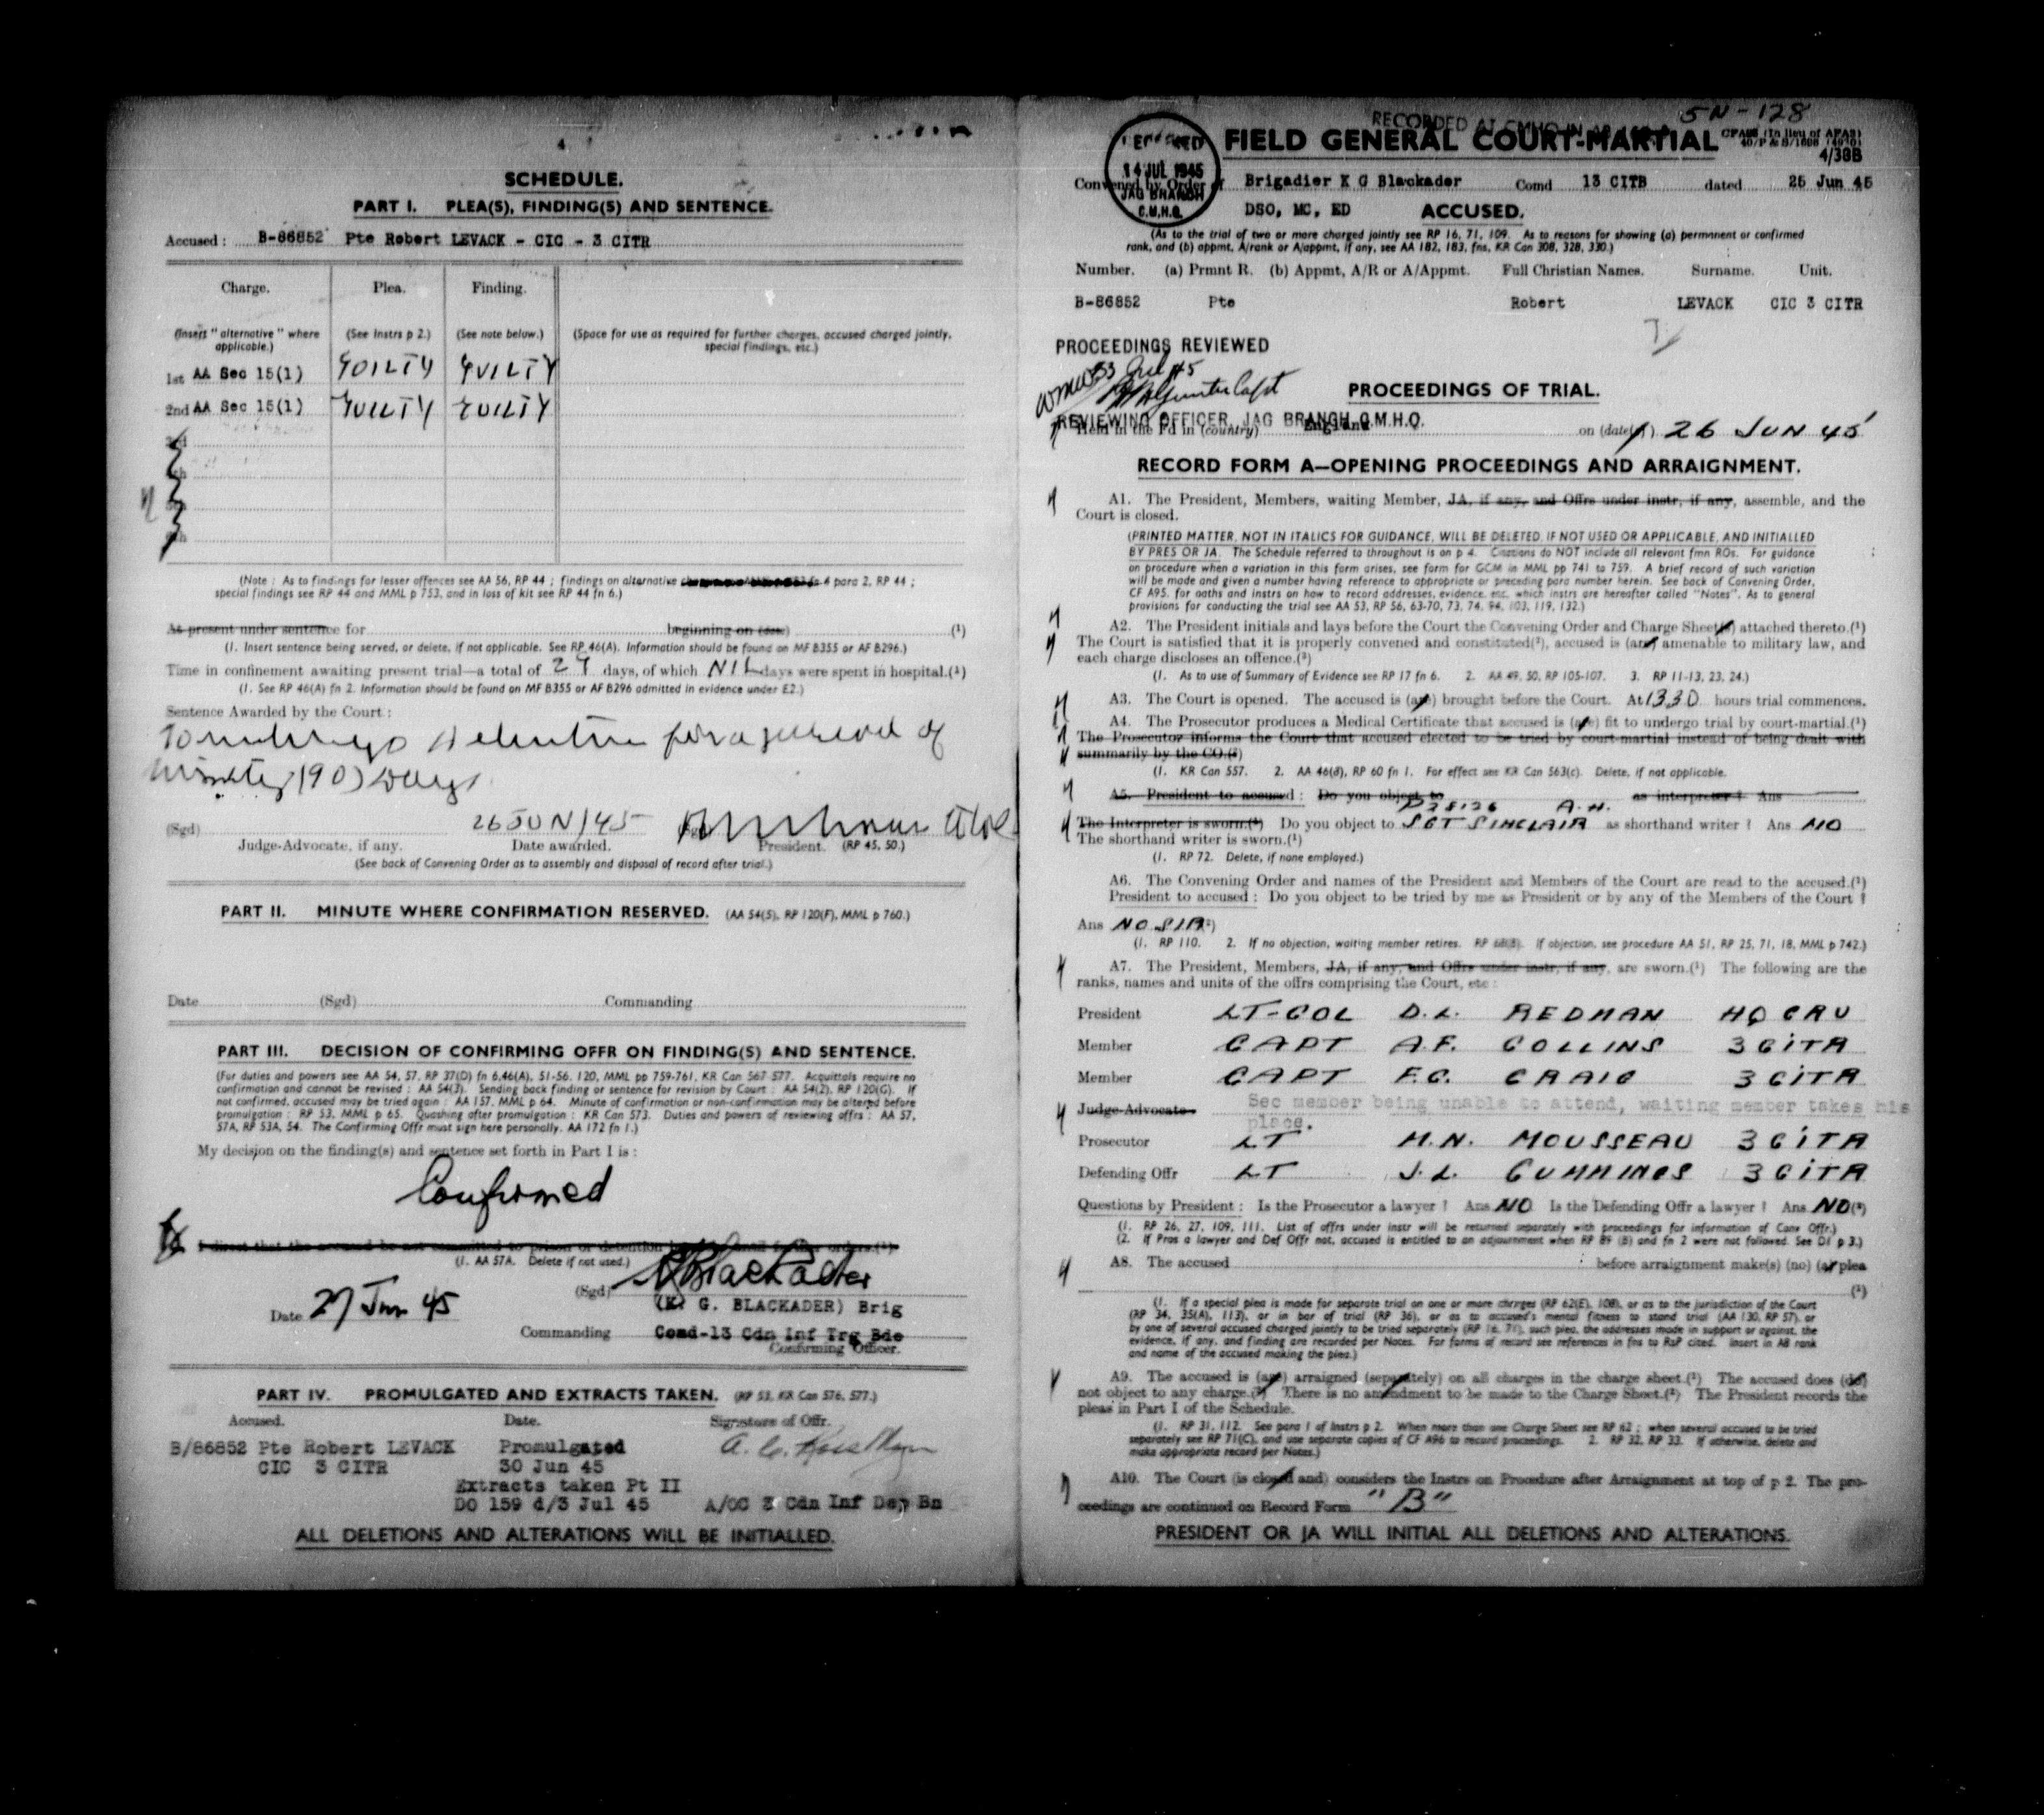 4
SCHEDULE.
PART I. PLEA(S), FINDING(S) AND SENTENCE.
Accused : B-86852 Pte Robert LEVACK - CIC - 3 CITR
Charge. Plea. Finding.
(Insert " alternative " where applicable.) (See Instrs p 2.) (See note below.) (Space for use as required for further charges, accused charged jointly, special findings, etc.)
1st AA Sec 15(1) GUILTY GUILTY
2nd AA Sec 15(1) GUILTY GUILTY
3rd
(Note : As to findings for lesser offences see AA 56, RP 44 ; findings on alternative fn 4 para 2, RP 44 ;
special findings see RP 44 and MML p 753, and in loss of kit see RP 44 fn 6.)
At present under sentence for beginning on (date) (1)
(1. Insert sentence being served, or delete, if not applicable. See RP 46(A). Information should be found on MF B355 or AF B296.)
Time in confinement awaiting present trial—a total of 29 days, of which NIL days were spent in hospital.(1)
(1. See RP 46(A) fn 2. Information should be found on MF B355 or AF B296 admitted in evidence under E2.)
Sentence Awarded by the Court :
To undergo detention for a period of
ninety (90) Days
(Sgd) 26 JUN/45 (Sgd)
Judge-Advocate, if any. Date awarded. President. (RP 45, 50.)
(See back of Convening Order as to assembly and disposal of record after trial.)
PART II. MINUTE WHERE CONFIRMATION RESERVED. (AA 54(5), RP 120(F), MML p 760.)
Date (Sgd) Commanding
PART III. DECISION OF CONFIRMING OFFR ON FINDING(S) AND SENTENCE.
(For duties and powers see AA 54, 57, RP 37(D) fn 6,46(A), 51-56, 120, MML pp 759-761, KR Can 567-577. Acquittals require no
confirmation and cannot be revised : AA 54(3). Sending back finding or sentence for revision by Court : AA 54(2), RP 120(G). If
not confirmed, accused may be tried again : AA 157, MML p 64. Minute of confirmation or non-confirmation may be altered before
promulgation : RP 53, MML p 65. Quashing after promulgation : KR Can 573. Duties and powers of reviewing offrs : AA 57,
57A, RP 53A, 54. The Confirming Offr must sign here personally. AA 172 fn 1.)
My decision on the finding(s) and sentence set forth in Part I is :
Confirmed
I direct that the accused be not committed to prison or detention until further orders.(1)
(1. AA 57A. Delete if not used.)
(Sgd) K Blackader
Date 27 Jun 45 (K. G. BLACKADER) Brig
Commanding Comd-13 Cdn Inf Trg Bde
Confirming Officer.
PART IV. PROMULGATED AND EXTRACTS TAKEN. (RP 53, KR Can 576, 577.)
Accused. Date. Signature of Offr.
B/86852 Pte Robert LEVACK Promulgated
CIC 3 CITR 30 Jun 45
Extracts taken Pt II
DO 159 d/3 Jul 45 A/OC 3 Cdn Inf Dep Bn
ALL DELETIONS AND ALTERATIONS WILL BE INITIALLED.
5N-128
RECORDED AT CMHQ IN
FIELD GENERAL COURT-MARTIAL
CFA96 (In lieu of AFA3)
4/38B
RECEIVED
14 JUL 1945
JAG BRANCH
C.M.H.Q.
Convened by Order of Brigadier K G Blackader Comd 13 CITB dated 25 Jun 45
DSO, MC, ED ACCUSED.
(As to the trial of two or more charged jointly see RP 16, 71, 109. As to reasons for showing (a) permanent or confirmed
rank, and (b) appmt, A/rank or A/appmt, if any, see AA 182, 183, fns, KR Can 308, 328, 330.)
Number. (a) Prmnt R. (b) Appmt, A/R or A/Appmt. Full Christian Names. Surname. Unit.
B-86852 Pte Robert LEVACK CIC 3 CITR
PROCEEDINGS REVIEWED
PROCEEDINGS OF TRIAL.
REVIEWING OFFICER, JAG BRANCH C.M.H.Q.
Held in the Fd in (country) England on (date(s)) 26 JUN 45
RECORD FORM A—OPENING PROCEEDINGS AND ARRAIGNMENT.
A1. The President, Members, waiting Member, JA, if any, and Offrs under instr, if any, assemble, and the
Court is closed.
(PRINTED MATTER, NOT IN ITALICS FOR GUIDANCE, WILL BE DELETED, IF NOT USED OR APPLICABLE, AND INITIALLED
BY PRES OR JA. The Schedule referred to throughout is on p 4. Citations do NOT include all relevant fmn ROs. For guidance
on procedure when a variation in this form arises, see form for GCM in MML pp 741 to 759. A brief record of such variation
will be made and given a number having reference to appropriate or preceding para number herein. See back of Convening Order,
CF A95, for oaths and instrs on how to record addresses, evidence, etc, which instrs are hereafter called "Notes". As to general
provisions for conducting the trial see AA 53, RP 56, 63-70, 73, 74, 94, 103, 119, 132.)
A2. The President initials and lays before the Court the Convening Order and Charge Sheet(s) attached thereto.(1)
The Court is satisfied that it is properly convened and constituted(2), accused is (are) amenable to military law, and
each charge discloses an offence.(3)
(1. As to use of Summary of Evidence see RP 17 fn 6. 2. AA 49, 50, RP 105-107. 3. RP 11-13, 23, 24.)
A3. The Court is opened. The accused is (are) brought before the Court. At 1330 hours trial commences.
A4. The Prosecutor produces a Medical Certificate that accused is (are) fit to undergo trial by court-martial.(1)
The Prosecutor informs the Court that accused elected to be tried by court-martial instead of being dealt with
summarily by the CO.(2)
(1. KR Can 557. 2. AA 46(8), RP 60 fn 1. For effect see KR Can 563(c). Delete, if not applicable.
A5. President to accused : Do you object to as interpreter ? Ans
P28126 A.H.
The Interpreter is sworn.(1) Do you object to SGT SINCLAIR as shorthand writer ? Ans NO
The shorthand writer is sworn.(1)
(1. RP 72. Delete, if none employed.)
A6. The Convening Order and names of the President and Members of the Court are read to the accused.(1)
President to accused : Do you object to be tried by me as President or by any of the Members of the Court ?
Ans NO SIR(2)
(1. RP 110. 2. If no objection, waiting member retires. RP 68(B). If objection, see procedure AA 51, RP 25, 71, 18, MML p 742.)
A7. The President, Members, JA, if any, and Offrs under instr, if any, are sworn.(1) The following are the
ranks, names and units of the offrs comprising the Court, etc :
President LT-COL D.L. REDMAN HQ CRU
Member CAPT A.F. COLLINS 3 CITR
Member CAPT F.C. CRAIG 3 CITR
Judge-Advocate Sec member being unable to attend, waiting member takes his
place.
Prosecutor LT H.N. MOUSSEAU 3 CITR
Defending Offr LT J.L. CUMMINGS 3 CITR
Questions by President : Is the Prosecutor a lawyer ? Ans NO Is the Defending Offr a lawyer ? Ans NO(2)
(1. RP 26, 27, 109, 111. List of offrs under instr will be returned separately with proceedings for information of Conv Offr.)
(2. If Pros a lawyer and Def Offr not, accused is entitled to an adjournment when RP 89 (B) and fn 2 were not followed. See D1 p 3.)
A8. The accused before arraignment make(s) (no) (a) plea
(1)
(1. If a special plea is made for separate trial on one or more charges (RP 62(E), 108), or as to the jurisdiction of the Court
(RP 34, 35(A), 113), or in bar of trial (RP 36), or as to accused's mental fitness to stand trial (AA 130, RP 57), or
by one of several accused charged jointly to be tried separately (RP 16, 71), such plea, the addresses made in support or against, the
evidence, if any, and finding are recorded per Notes. For forms of record see references in fns to RsP cited. Insert in A8 rank
and name of the accused making the plea.)
A9. The accused is (are) arraigned (separately) on all charges in the charge sheet.(1) The accused does (do)
not object to any charge.(2) There is no amendment to be made to the Charge Sheet.(2) The President records the
pleas in Part I of the Schedule.
(1. RP 31, 112. See para 1 of Instrs p 2. When more than one Charge Sheet see RP 62 ; when several accused to be tried
separately see RP 71(C), and use separate copies of CF A96 to record proceedings. 2. RP 32, RP 33. If otherwise, delete and
make appropriate record per Notes.)
A10. The Court (is closed and) considers the Instrs on Procedure after Arraignment at top of p 2. The pro-
ceedings are continued on Record Form "B"
PRESIDENT OR JA WILL INITIAL ALL DELETIONS AND ALTERATIONS.